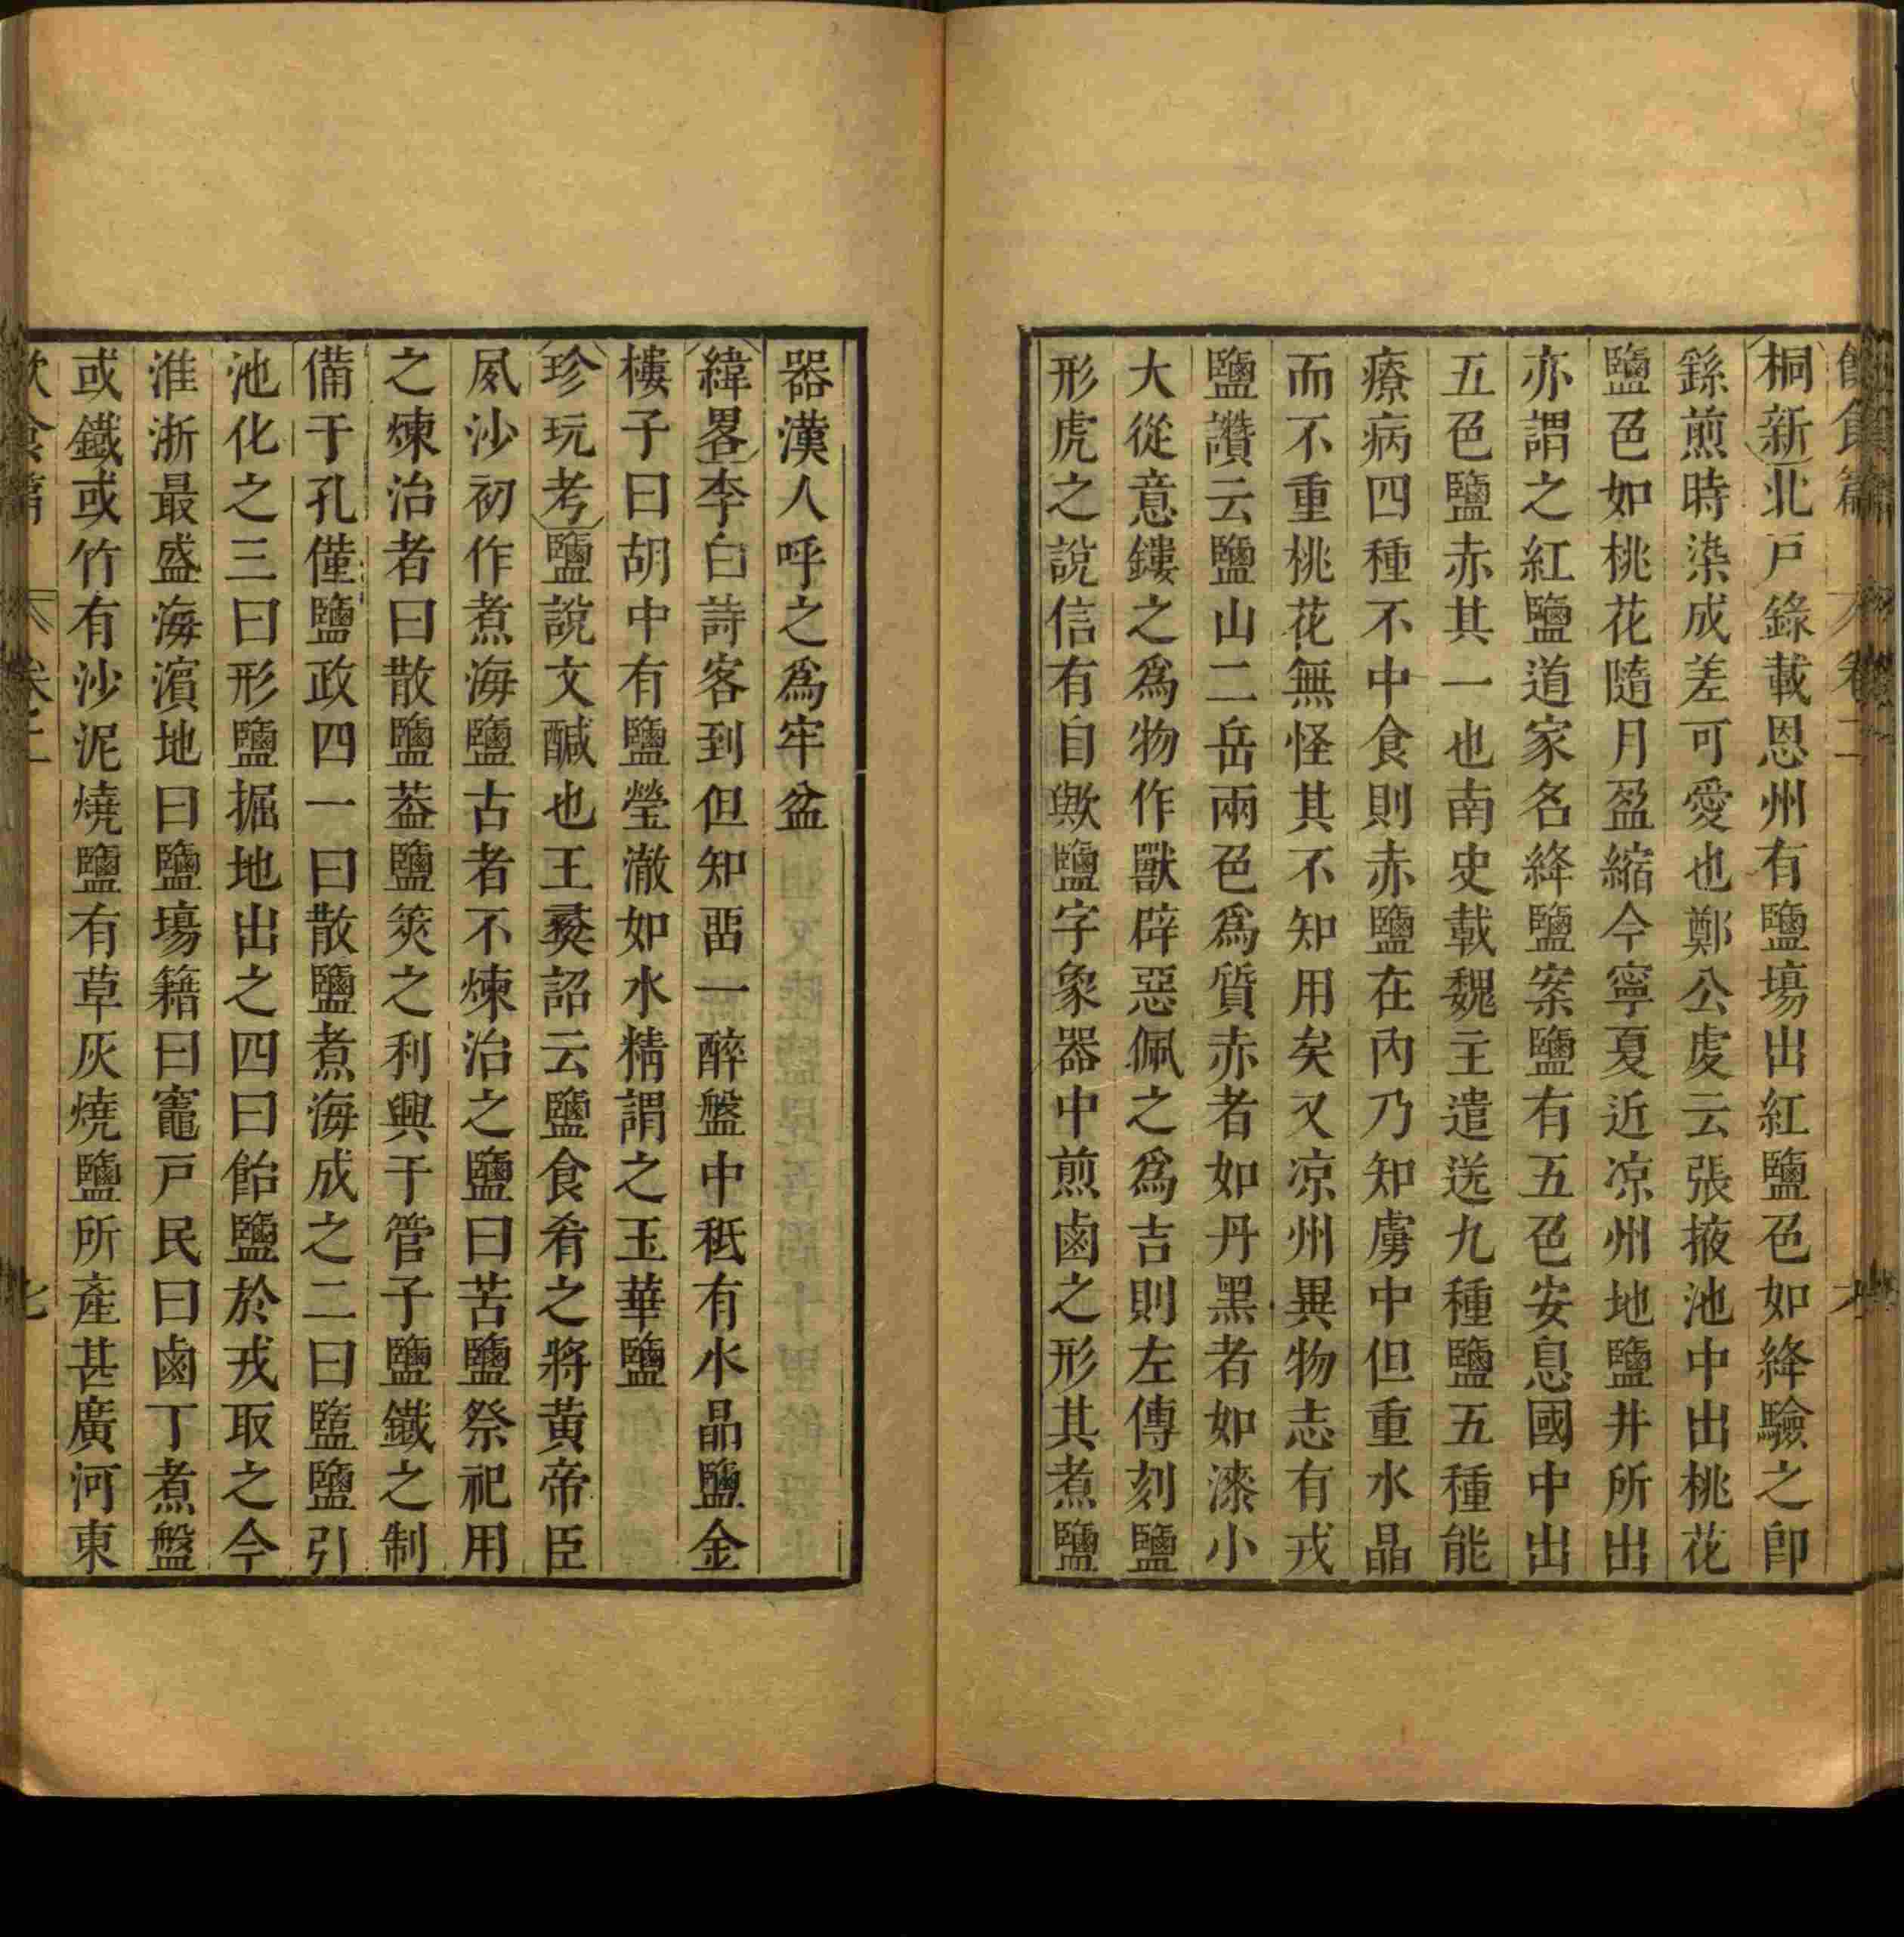 飲食篇 卷二 六
桐新北戸錄載恩州有鹽塲出紅鹽色如絳驗之卽
鎐煎時染成差可愛也鄭公虔云張掖池中出桃花
鹽色如桃花隨月盈縮今寧夏近凉州地鹽井所出
亦謂之紅鹽道家名絳鹽案鹽有五色安息國中出
五色鹽赤其一也南史載魏主遣送九種鹽五種能
療病四種不中食則赤鹽在內乃知虜中但重水晶
而不重桃花無怪其不知用矣又凉州異物志有戎
鹽讚云鹽山二岳兩色爲質赤者如丹黑者如漆小
大從意鏤之爲物作獸辟惡佩之爲吉則左傳刻鹽
形虎之說信有自歟鹽字象器中煎鹵之形其煮鹽
器漢人呼之爲牢盆
緯畧李白詩客到但知畱一醉盤中秖有水晶鹽金
樓子曰胡中有鹽瑩澈如水精謂之玉華鹽
珍玩考鹽說文鹹也王莽詔云鹽食肴之將黃帝臣
夙沙初作煮海鹽古者不煉治之鹽曰苦鹽祭祀用
之煉治者曰散鹽葢鹽筴之利興于管子鹽鐵之制
備于孔僅鹽政四一曰散鹽煮海成之二曰鹽鹽引
池化之三曰形鹽掘地出之四曰飴鹽於戎取之今
淮浙最盛海濵地曰鹽塲籍曰竈戸民曰鹵丁煮盤
或鐵或竹有沙泥燒鹽有草灰燒鹽所產甚廣河東
飲食篇 卷二 七